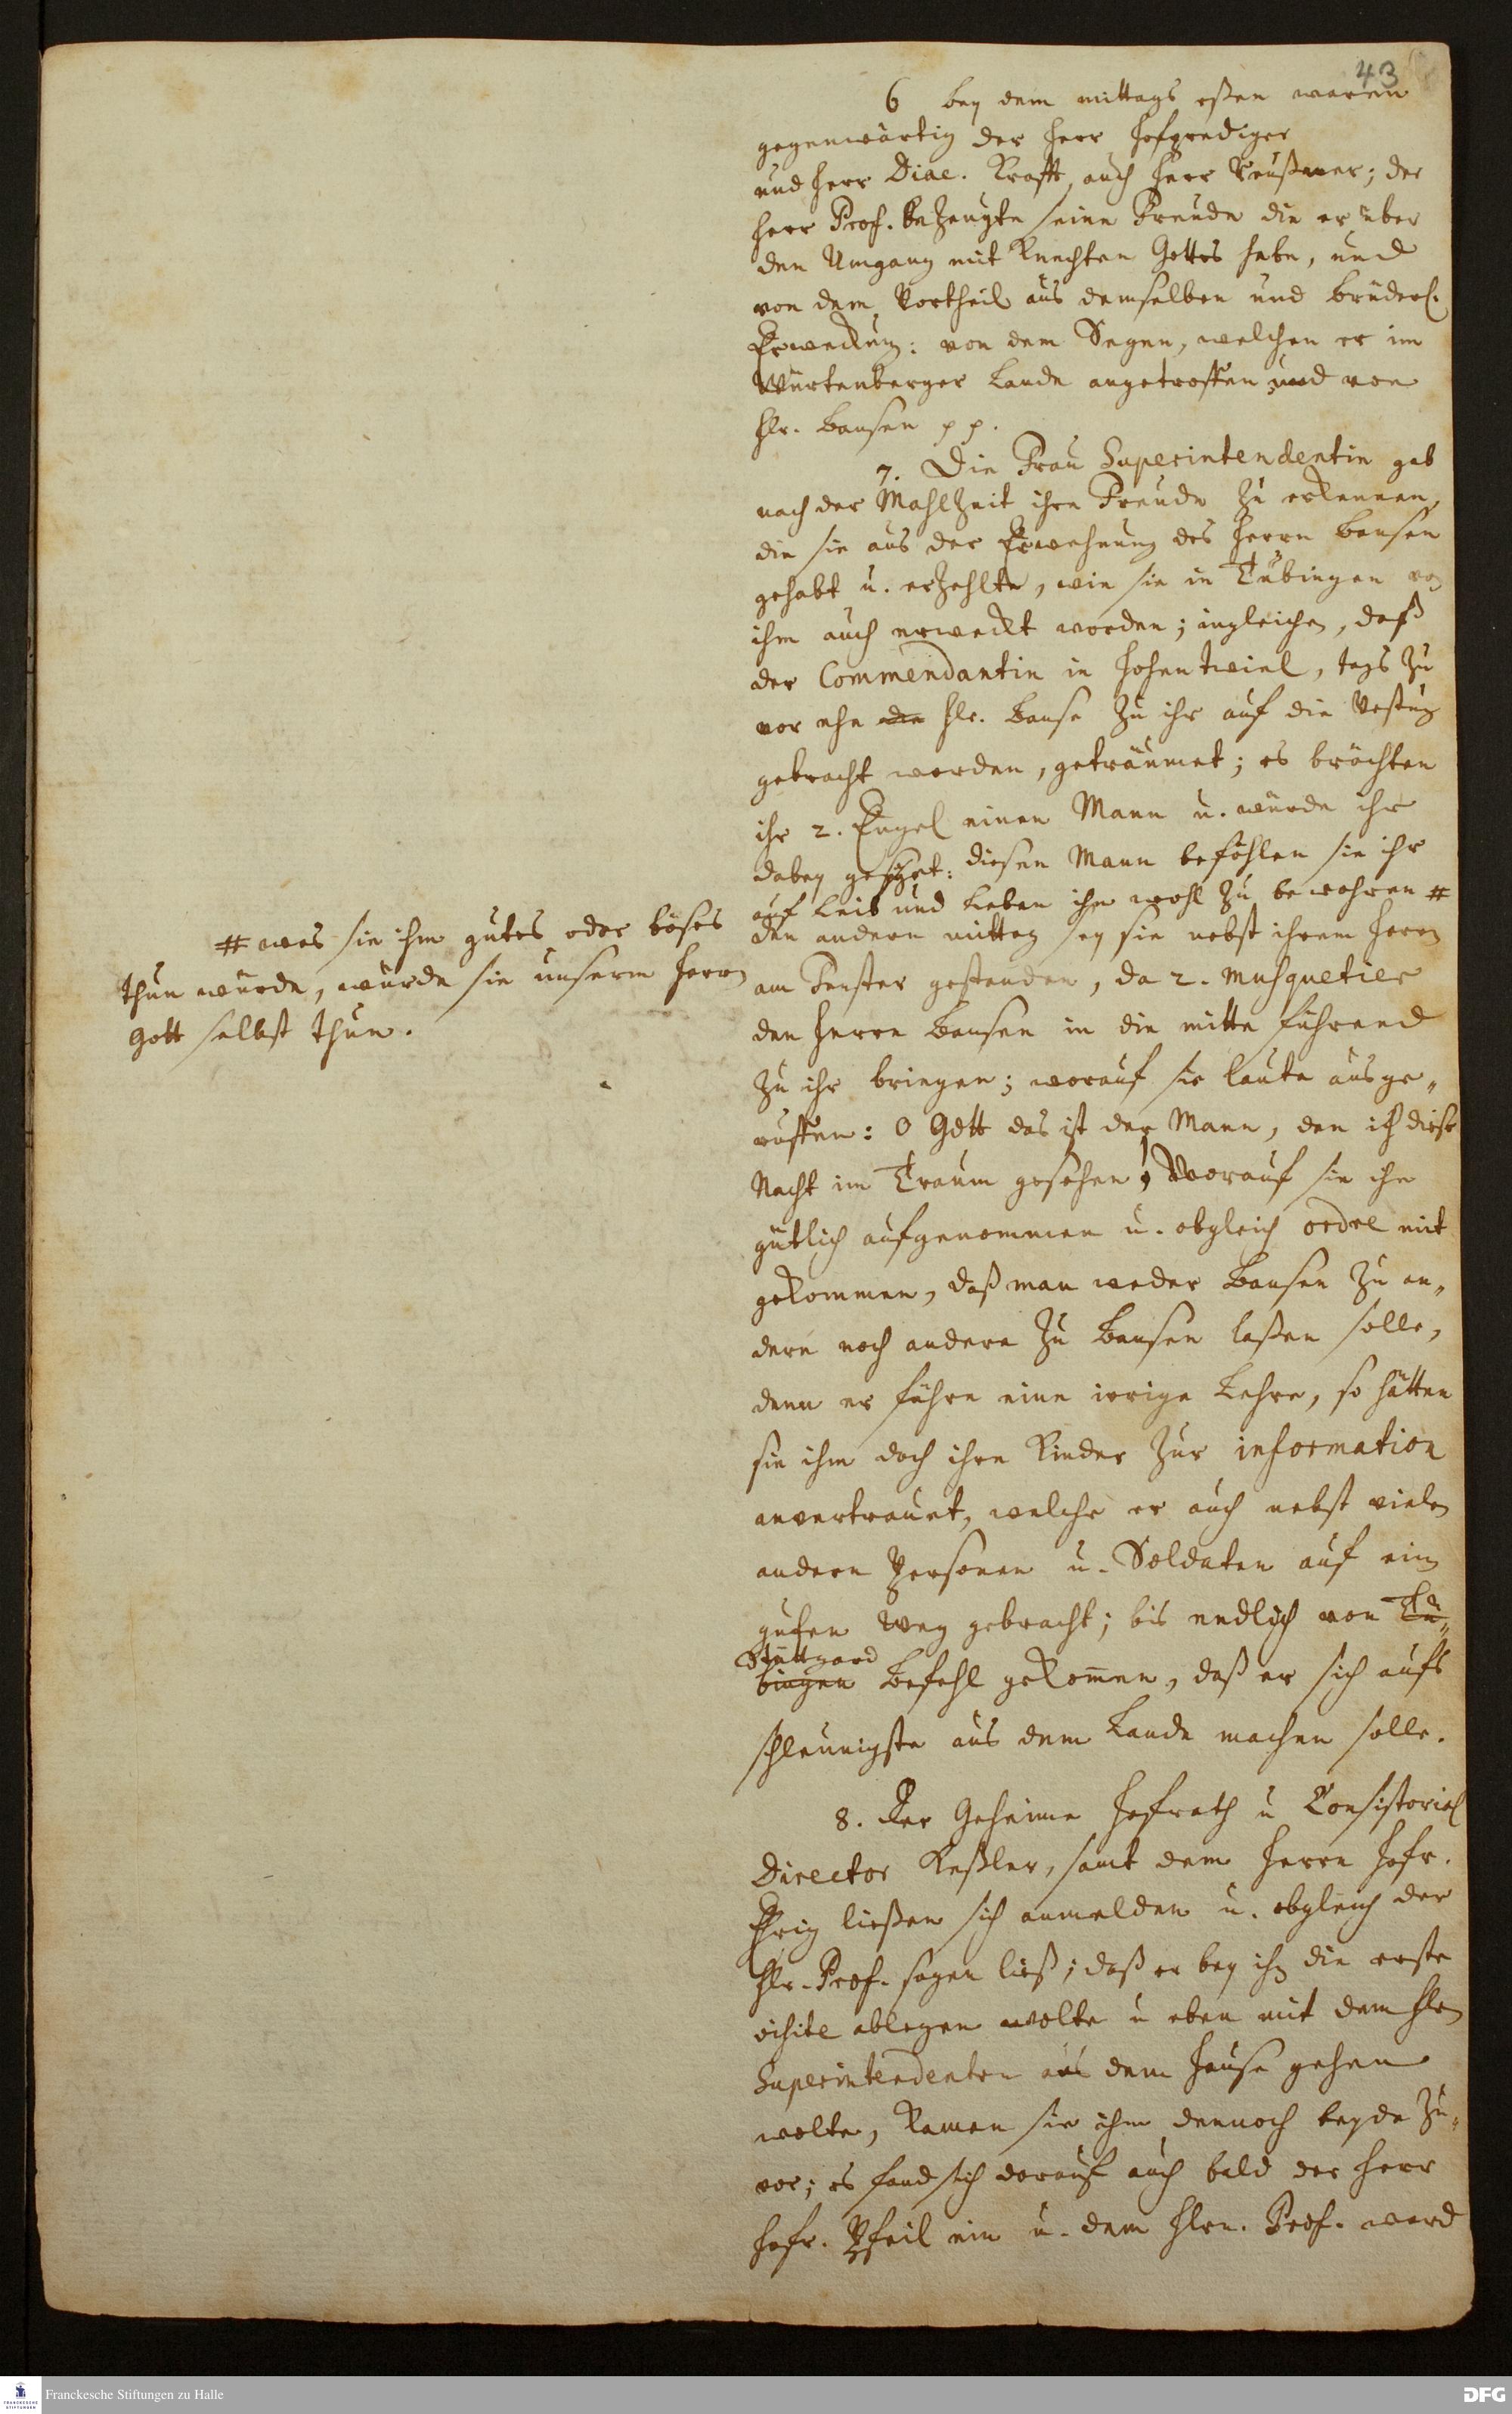 43
6 bey dem mittags eßen waren
gegenwärtig der Herr Hofprediger
und Herr Diac. Krafft, auch Herr ; der
Herr Prof. bezeugte seine Freude die er über
den Umgang mit Knechten Gottes habe, und
von dem Vortheil aus demselben und brüderl.
Erweckung: von dem Segen, welchen er im
Würtenberger Lande angetroffen und von
Hr. Bausen pp.
7. Die Frau Superintendentin gab
nach der Mahlzeit ihre Freude zu erkennen,
die sie aus der Erwehnung des Herrn Bausen
gehabt u. erzehlte, wie sie in Tübingen von
ihm auch erweckt worden; ingleichen, daß
der Commendantin in Hohentwiel, tags zu
vor ehe die Hr. Bause zu ihr auf die Vestung
gebracht worden, geträumet; es brächten
ihr 2. Engel einen Mann u. würde ihr
dabey gesagt: diesen Mann beföhlen sie ihr
auf Leib und Leben ihn wohl zu bewahren #
# was sie ihm gutes oder böses
thun würde, würde sie unserm Herrn
Gott selbst thun.
den andern mittag sey sie nebst ihrem Herrn
am Fenster gestanden, da 2. Musquetier
den Herrn Bausen in die mitte führend
zu ihr bringen; worauf sie laute ausge„
ruffen: O Gott das ist der Mann, den ich diese
Nacht im Traum gesehen! Worauf sie ihn
gütlich aufgenommen u. obgleich ordre mit
gekommen, daß man weder Bausen zu an„
dern noch andere zu Bausen laßen solle,
denn er führe eine irrige Lehre, so hätten
sie ihm doch ihre Kinder zur information
anvertrauet, welche er auch nebst vielen
andern Personen u. Soldaten auf ein
guten Weg gebracht; bis endlich von Tü„
Stuttgard
bingen Befehl gekommen, daß er sich aufs
schleunigste aus dem Lande machen solle.
8. Der Geheime Hofrath u Consistorial
Director Keßler, samt dem Herrn Hofr.
Ihrig ließen sich anmelden u. obgleich der
Hr. Prof. sagen ließ; daß er bey ihn die erste
visite ablegen wolte u eben mit dem Hrn
Superintendenten aus dem Hause gehen
wolte, kamen sie ihm dennoch beyde zu„
vor; es fand sich darauf auch bald der Herr
Hofr. Pfeil ein u. dem Hrn. Prof. ward
Franckesche Stiftungen zu Halle
DFG